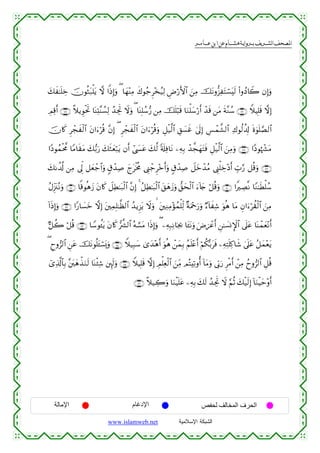 المصحف الشريف برواية هشام عن ابن عامر
وَإِن كَادُوا۟ لَيَسْتَفِزُّونَكَ مِنَ ٱلْأَرْضِ لِيُخْرِجُوكَ مِنْهَا ۖ وَإِذًا لَّا يَلْبَثُونَ خِلَٰفَكَ
إِلَّا قَلِيلًا ﴿٧٦﴾ سُنَّةَ مَن قَدْ أَرْسَلْنَا قَبْلَكَ مِن رُّسُلِنَا ۖ وَلَا تَجِدُ لِسُنَّتِنَا تَحْوِيلًا ﴿٧٧﴾ أَقِمِ
ٱلصَّلَوٰةَ لِدُلُوكِ ٱلشَّمْسِ إِلَىٰ غَسَقِ ٱلَّيْلِ وَقُرْءَانَ ٱلْفَجْرِ ۖ إِنَّ قُرْءَانَ ٱلْفَجْرِ كَانَ
مَشْهُودًا ﴿٧٨﴾ وَمِنَ ٱلَّيْلِ فَتَهَجَّدْ بِهِۦ نَافِلَةً لَّكَ عَسَىٰٓ أَن يَبْعَثَكَ رَبُّكَ مَقَامًا مَّحْمُودًا
﴿٧٩﴾ وَقُل رَّبِّ أَدْخِلْنِى مُدْخَلَ صِدْقٍ وَأَخْرِجْنِى مُخْرَجَ صِدْقٍ وَٱجْعَل لِّى مِن لَّدُنكَ
سُلْطَٰنًا نَّصِيرًا ﴿٨٠﴾ وَقُلْ جَآءَ ٱلْحَقُّ وَزَهَقَ ٱلْبَٰطِلُ ۚ إِنَّ ٱلْبَٰطِلَ كَانَ زَهُوقًا ﴿٨١﴾ وَنُنَزِّلُ
مِنَ ٱلْقُرْءَانِ مَا هُوَ شِفَآءٌ وَرَحْمَةٌ لِّلْمُؤْمِنِينَ ۙ وَلَا يَزِيدُ ٱلظَّٰلِمِينَ إِلَّا خَسَارًا ﴿٨٢﴾ وَإِذَآ
أَنْعَمْنَا عَلَى ٱلْإِنسَٰنِ أَعْرَضَ وَنَـَٔا بِجَانِبِهِۦ ۖ وَإِذَا مَسَّهُ ٱلشَّرُّ كَانَ يَـُٔوسًا ﴿٨٣﴾ قُلْ كُلٌّ
يَعْمَلُ عَلَىٰ شَاكِلَتِهِۦ فَرَبُّكُمْ أَعْلَمُ بِمَنْ هُوَ أَهْدَىٰ سَبِيلًا ﴿٨٤﴾ وَيَسْـَٔلُونَكَ عَنِ ٱلرُّوحِ ۖ
قُلِ ٱلرُّوحُ مِنْ أَمْرِ رَبِّى وَمَآ أُوتِيتُم مِّنَ ٱلْعِلْمِ إِلَّا قَلِيلًا ﴿٨٥﴾ وَلَئِن شِئْنَا لَنَذْهَبَنَّ بِٱلَّذِىٓ
أَوْحَيْنَآ إِلَيْكَ ثُمَّ لَا تَجِدُ لَكَ بِهِۦ عَلَيْنَا وَكِيلًا ﴿٨٦﴾
الحرف المخالف لحفص الإدغام الإمالة
www.islamweb.net الشبكة الإسلامية